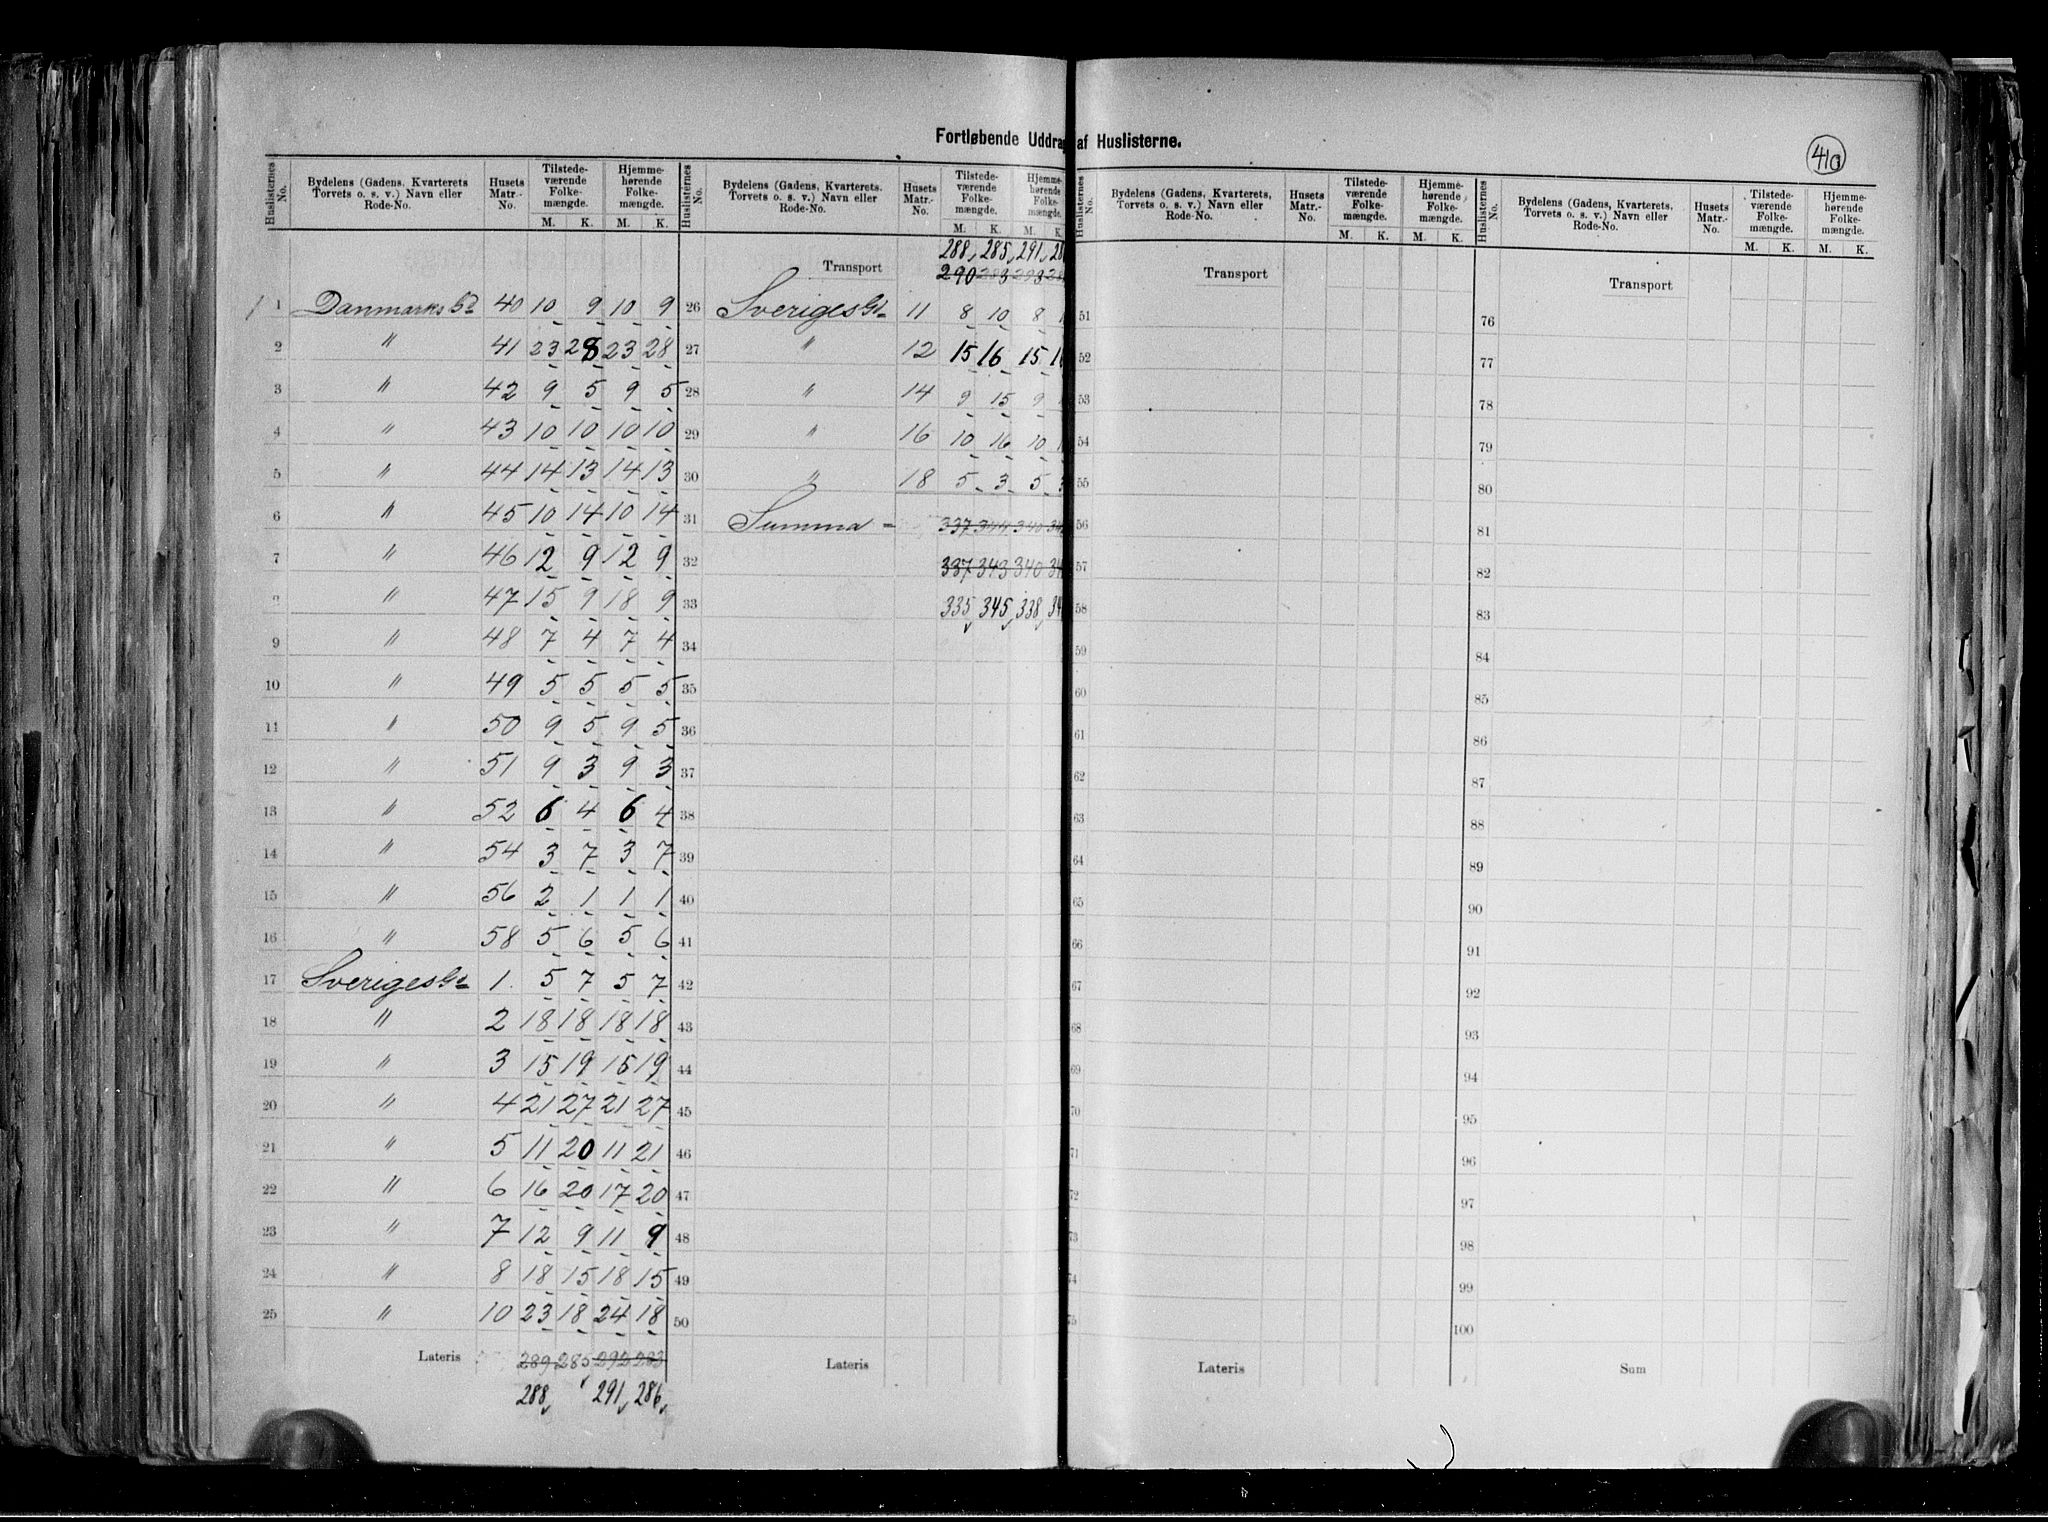 Fortløbende Uddrag af Huslisterne.
410
Huslisternes No. Bydelens (Gadens, Kvarterets Torvets o. s. v.) Navn eller Rode-No. Husets Matr.-No. Tilstede-værende Folke-mængde. M. K. Hjemme-hørende Folke-mængde. M. K.
1 Danmarks Gd 40 10 9 10 9
2 " 41 23 28 23 28
3 " 42 9 5 9 5
4 " 43 10 10 10 10
5 " 44 14 13 14 13
6 " 45 10 14 10 14
7 " 46 12 9 12 9
8 " 47 15 9 18 9
9 " 48 7 4 7 4
10 " 49 5 5 5 5
11 " 50 9 5 9 5
12 " 51 9 3 9 3
13 " 52 6 4 6 4
14 " 54 3 7 3 7
15 " 56 2 1 1 1
16 " 58 5 6 5 6
17 Sveriges Gd 1. 5 7 5 7
18 " 2 18 18 18 18
19 " 3 15 19 15 19
20 " 4 21 27 21 27
21 " 5 11 20 11 21
22 " 6 16 20 17 20
23 " 7 12 9 11 9
24 " 8 18 15 18 15
25 " 10 23 18 24 18
Lateris 289 285 292 283
288 291 286
Huslisternes No. Bydelens (Gadens, Kvarterets. Torvets o. s. v.) Navn eller Rode-No. Husets Matr.-No. Tilstede-værende Folke-mængde. M. K. Hjemme-hørende Folke-mængde. M. K.
288 285 291 28
Transport 290 283 293 28
26 Sveriges Gd 11 8 10 8 1
27 " 12 15 16 15 16
28 " 14 9 15 9 1
29 " 16 10 16 10 1
30 " 18 5 3 5 3
31 Summa - 337 344 340 34
32 337 343 340 34
33 335 345 338 34
34
35
36
37
38
39
40
41
42
43
44
45
46
47
48
49
50
Lateris
Huslisternes No. Bydelens (Gadens, Kvarterets Torvets o. s. v.) Navn eller Rode-No. Husets Matr.-No. Tilstede-værende Folke-mængde. M. K. Hjemme-hørende Folke-mængde. M. K.
Transport
51
52
53
54
55
56
57
58
59
60
61
62
63
64
65
66
67
68
69
70
71
72
73
74
75
Lateris
Huslisternes No. Bydelens (Gadens, Kvarterets Torvets o. s. v.) Navn eller Rode-No. Husets Matr.-No. Tilstede-værende Folke-mængde. M. K. Hjemme-hørende Folke-mængde. M. K.
Transport
76
77
78
79
80
81
82
83
84
85
86
87
88
89
90
91
92
93
94
95
96
97
98
99
100
Sum